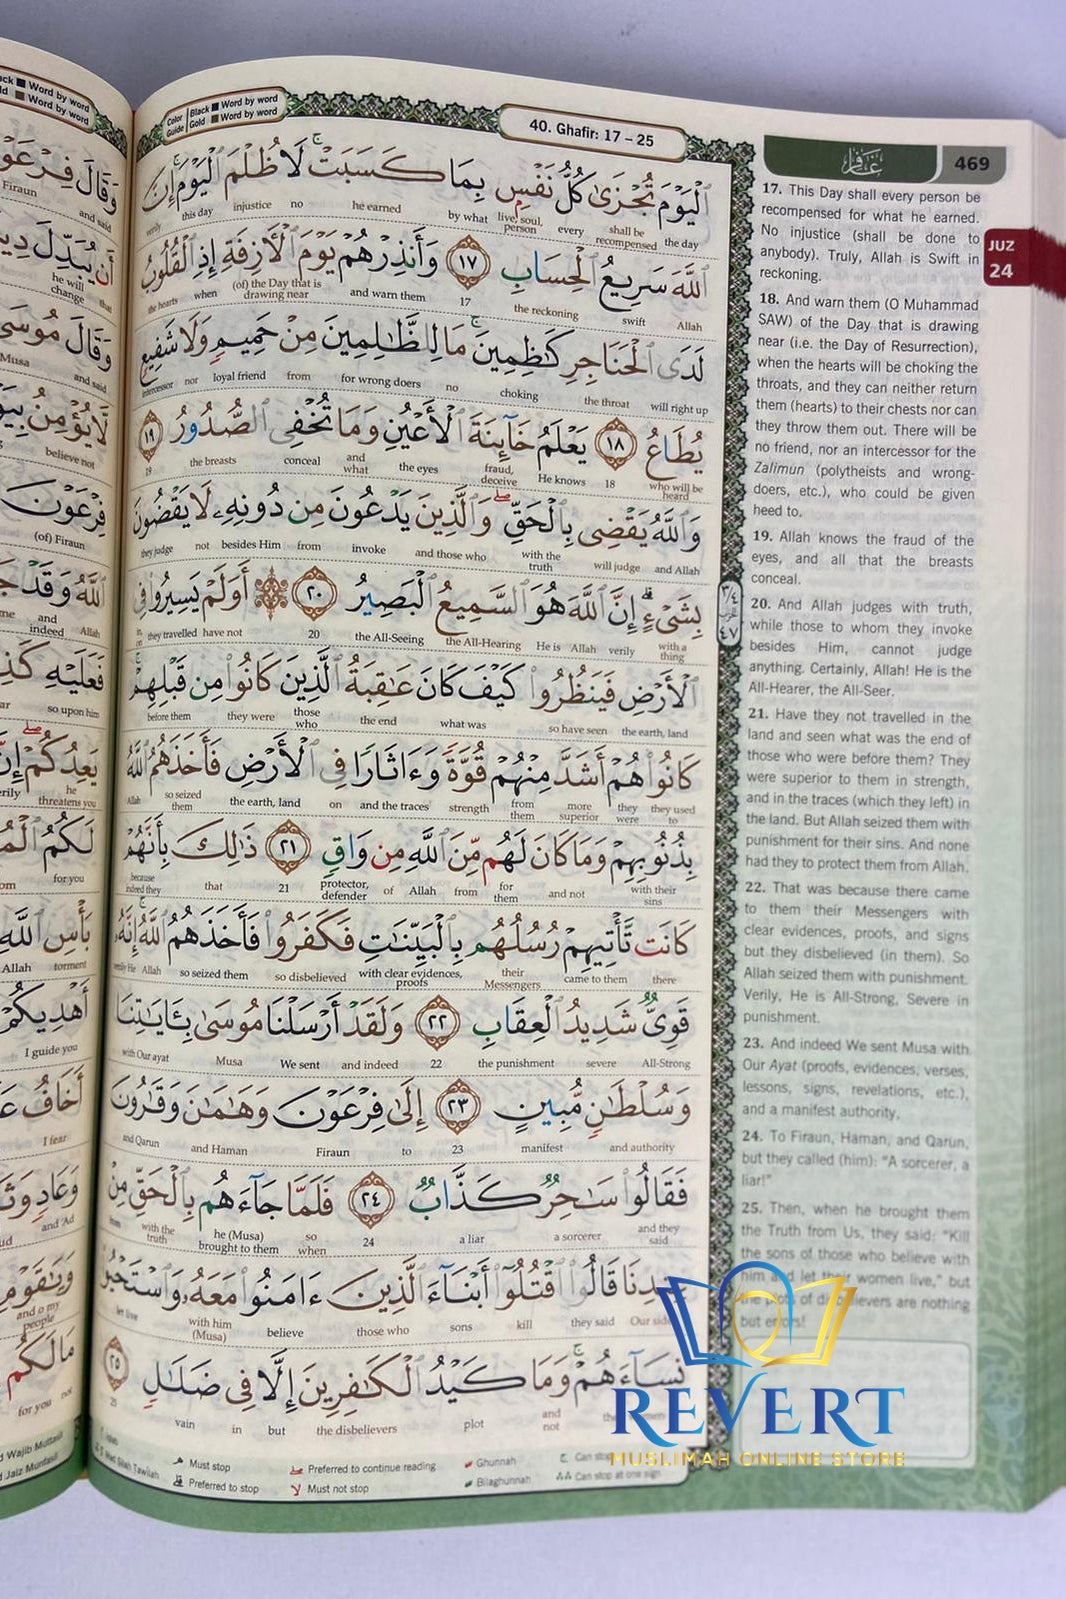 Color Guide
Black Word by word
Gold Word by word
40. Ghafir: 17 – 25
غافر
469
JUZ
24
ٱلْيَوْمَ تُجْزَىٰ كُلُّ نَفْسٍۭ بِمَا كَسَبَتْ ۚ لَا ظُلْمَ ٱلْيَوْمَ ۚ إِنَّ
the day shall be recompensed every live, soul, person by what he earned no injustice this day verily
ٱللَّهَ سَرِيعُ ٱلْحِسَابِ ١٧ وَأَنذِرْهُمْ يَوْمَ ٱلْـَٔازِفَةِ إِذِ ٱلْقُلُوبُ
Allah swift the reckoning 17 and warn them (of) the Day that is drawing near when the hearts
لَدَى ٱلْحَنَاجِرِ كَـٰظِمِينَ ۚ مَا لِلظَّـٰلِمِينَ مِنْ حَمِيمٍ وَلَا شَفِيعٍ
will right up the throat choking no for wrong doers from loyal friend nor intercessor
يُطَاعُ ١٨ يَعْلَمُ خَآئِنَةَ ٱلْأَعْيُنِ وَمَا تُخْفِى ٱلصُّدُورُ ١٩
who will be heard 18 He knows fraud, deceive the eyes and what conceal the breasts 19
وَٱللَّهُ يَقْضِى بِٱلْحَقِّ ۖ وَٱلَّذِينَ يَدْعُونَ مِن دُونِهِۦ لَا يَقْضُونَ
and Allah will judge with the truth and those who invoke from besides Him not they judge
بِشَىْءٍ ۗ إِنَّ ٱللَّهَ هُوَ ٱلسَّمِيعُ ٱلْبَصِيرُ ٢٠ ۞ أَوَلَمْ يَسِيرُوا۟ فِى
with a thing verily Allah He is the All-Hearing the All-Seeing 20 have not they travelled in
ٱلْأَرْضِ فَيَنظُرُوا۟ كَيْفَ كَانَ عَـٰقِبَةُ ٱلَّذِينَ كَانُوا۟ مِن قَبْلِهِمْ ۚ
the earth, land so have seen what was the end those who they were before them
كَانُوا۟ هُمْ أَشَدَّ مِنْهُمْ قُوَّةً وَءَاثَارًا فِى ٱلْأَرْضِ فَأَخَذَهُمُ ٱللَّهُ
they used to they were more superior from them strength and the traces on the earth, land so seized them Allah
بِذُنُوبِهِمْ وَمَا كَانَ لَهُم مِّنَ ٱللَّهِ مِن وَاقٍ ٢١ ذَٰلِكَ بِأَنَّهُمْ
with their sins and not for them from Allah of protector, defender 21 that because indeed they
كَانَت تَّأْتِيهِمْ رُسُلُهُم بِٱلْبَيِّنَـٰتِ فَكَفَرُوا۟ فَأَخَذَهُمُ ٱللَّهُ ۚ إِنَّهُۥ
there came to them their Messengers with clear evidences, proofs so disbelieved so seized them Allah verily He
قَوِىٌّ شَدِيدُ ٱلْعِقَابِ ٢٢ وَلَقَدْ أَرْسَلْنَا مُوسَىٰ بِـَٔايَـٰتِنَا
All-Strong severe the punishment 22 and indeed We sent Musa with Our ayat
وَسُلْطَـٰنٍ مُّبِينٍ ٢٣ إِلَىٰ فِرْعَوْنَ وَهَـٰمَـٰنَ وَقَـٰرُونَ
and authority manifest 23 to Firaun and Haman and Qarun
فَقَالُوا۟ سَـٰحِرٌ كَذَّابٌ ٢٤ فَلَمَّا جَآءَهُم بِٱلْحَقِّ مِنْ
and they said a sorcerer a liar 24 so when he (Musa) brought to them with the truth from
عِندِنَا قَالُوا۟ ٱقْتُلُوٓا۟ أَبْنَآءَ ٱلَّذِينَ ءَامَنُوا۟ مَعَهُۥ وَٱسْتَحْيُوا۟
Our side they said kill sons those who believe with him (Musa) let live
نِسَآءَهُمْ ۚ وَمَا كَيْدُ ٱلْكَـٰفِرِينَ إِلَّا فِى ضَلَـٰلٍ ٢٥
and not plot the disbelievers but in vain 25
Must stop
Preferred to stop
Preferred to continue reading
Must not stop
Ghunnah
Bilaghunnah
Can stop
Can stop at one sign
17. This Day shall every person be
recompensed for what he earned.
No injustice (shall be done to
anybody). Truly, Allah is Swift in
reckoning.
18. And warn them (O Muhammad
SAW) of the Day that is drawing
near (i.e. the Day of Resurrection),
when the hearts will be choking the
throats, and they can neither return
them (hearts) to their chests nor can
they throw them out. There will be
no friend, nor an intercessor for the
Zalimun (polytheists and wrong-
doers, etc.), who could be given
heed to.
19. Allah knows the fraud of the
eyes, and all that the breasts
conceal.
20. And Allah judges with truth,
while those to whom they invoke
besides Him, cannot judge
anything. Certainly, Allah! He is the
All-Hearer, the All-Seer.
21. Have they not travelled in the
land and seen what was the end of
those who were before them? They
were superior to them in strength,
and in the traces (which they left) in
the land. But Allah seized them with
punishment for their sins. And none
had they to protect them from Allah.
22. That was because there came
to them their Messengers with
clear evidences, proofs, and signs
but they disbelieved (in them). So
Allah seized them with punishment.
Verily, He is All-Strong, Severe in
punishment.
23. And indeed We sent Musa with
Our Ayat (proofs, evidences, verses,
lessons, signs, revelations, etc.),
and a manifest authority,
24. To Firaun, Haman, and Qarun,
but they called (him): "A sorcerer, a
liar!"
25. Then, when he brought them
the Truth from Us, they said: "Kill
the sons of those who believe with
him and let their women live," but
the plots of disbelievers are nothing
but errors!
REVERT
MUSLIMAH ONLINE STORE